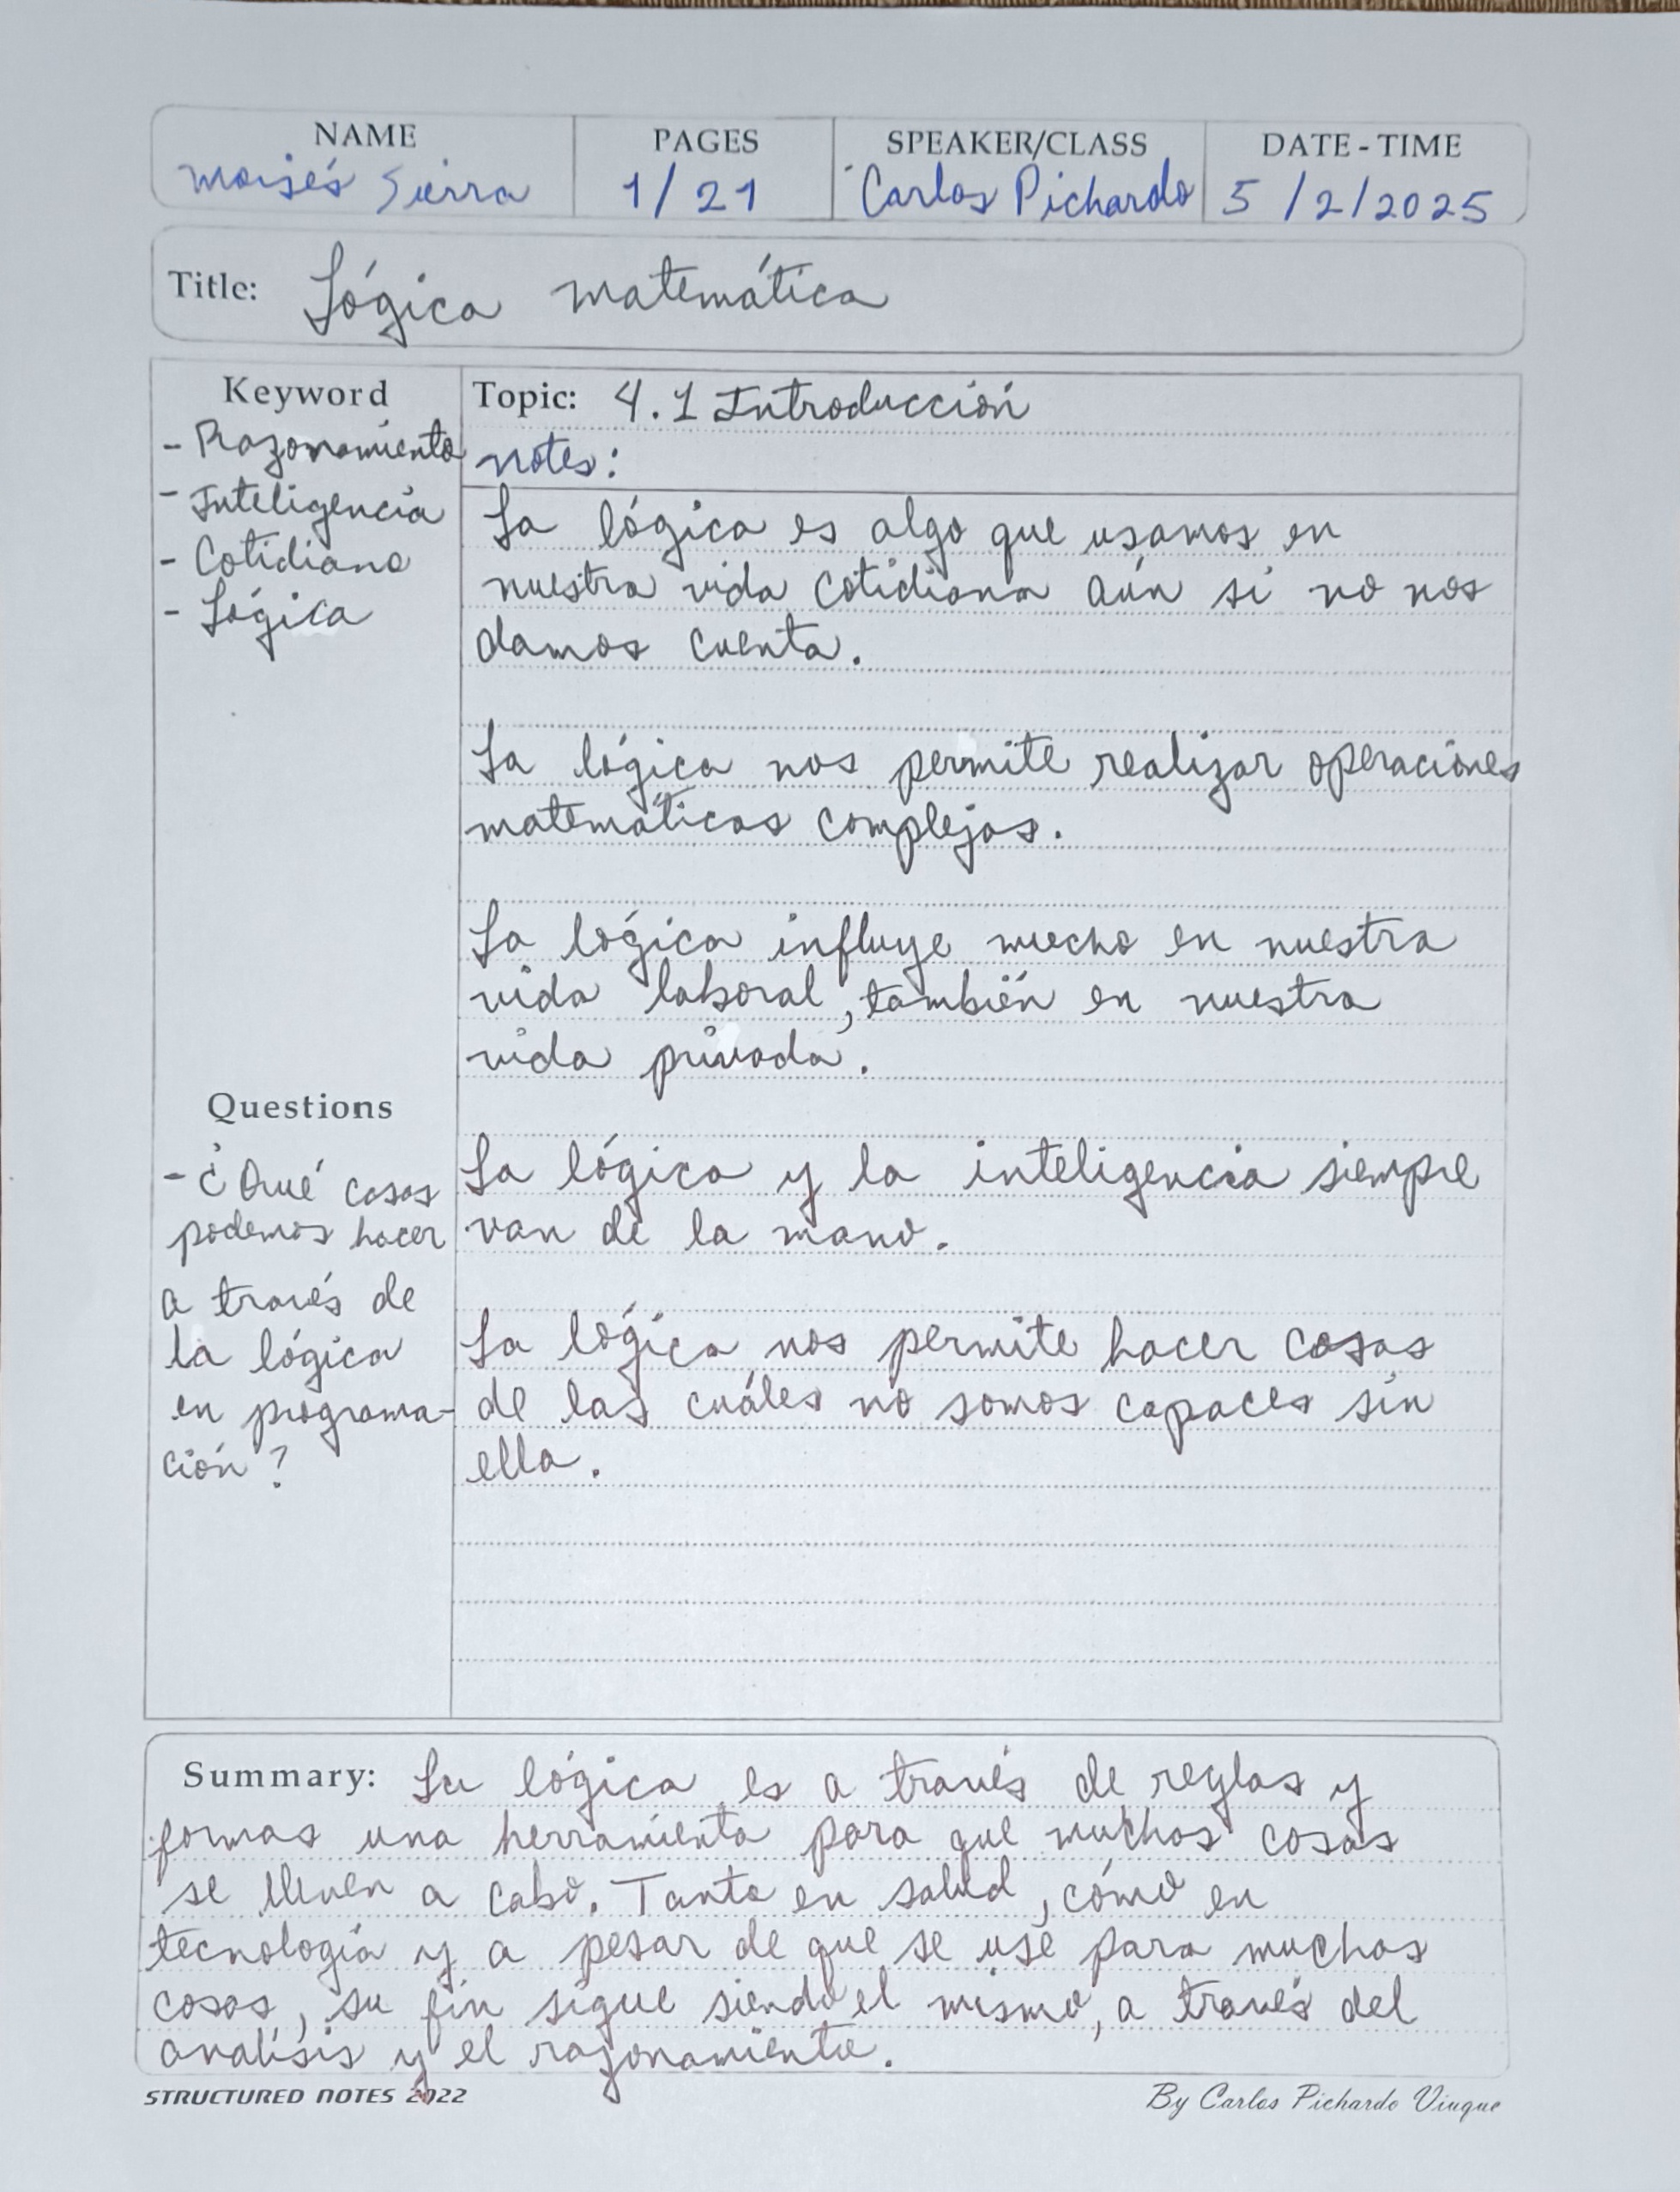 NAME PAGES SPEAKER/CLASS DATE - TIME
Moisés Sierra 1/21 Carlos Pichardo 5/2/2025
Title: Lógica matemática
Keyword
- Razonamiento
- Inteligencia
- Cotidiano
- Lógica
Topic: 4.1 Introducción
notes:
La lógica es algo que usamos en
nuestra vida cotidiana aún si no nos
damos cuenta.
La lógica nos permite realizar operaciones
matemáticas complejas.
La lógica influye mucho en nuestra
vida laboral, también en nuestra
vida privada.
La lógica y la inteligencia siempre
van de la mano.
La lógica nos permite hacer cosas
de las cuáles no somos capaces sin
ella.
Questions
- ¿Qué cosas
podemos hacer
a través de
la lógica
en programa-
ción?
Summary: La lógica es a través de reglas y
formas una herramienta para que muchas cosas
se lleven a cabo. Tanto en salud, cómo en
tecnología y a pesar de que se use para muchas
cosas, su fin sigue siendo el mismo, a través del
análisis y el razonamiento.
STRUCTURED NOTES 2022
By Carlos Pichardo Viuque